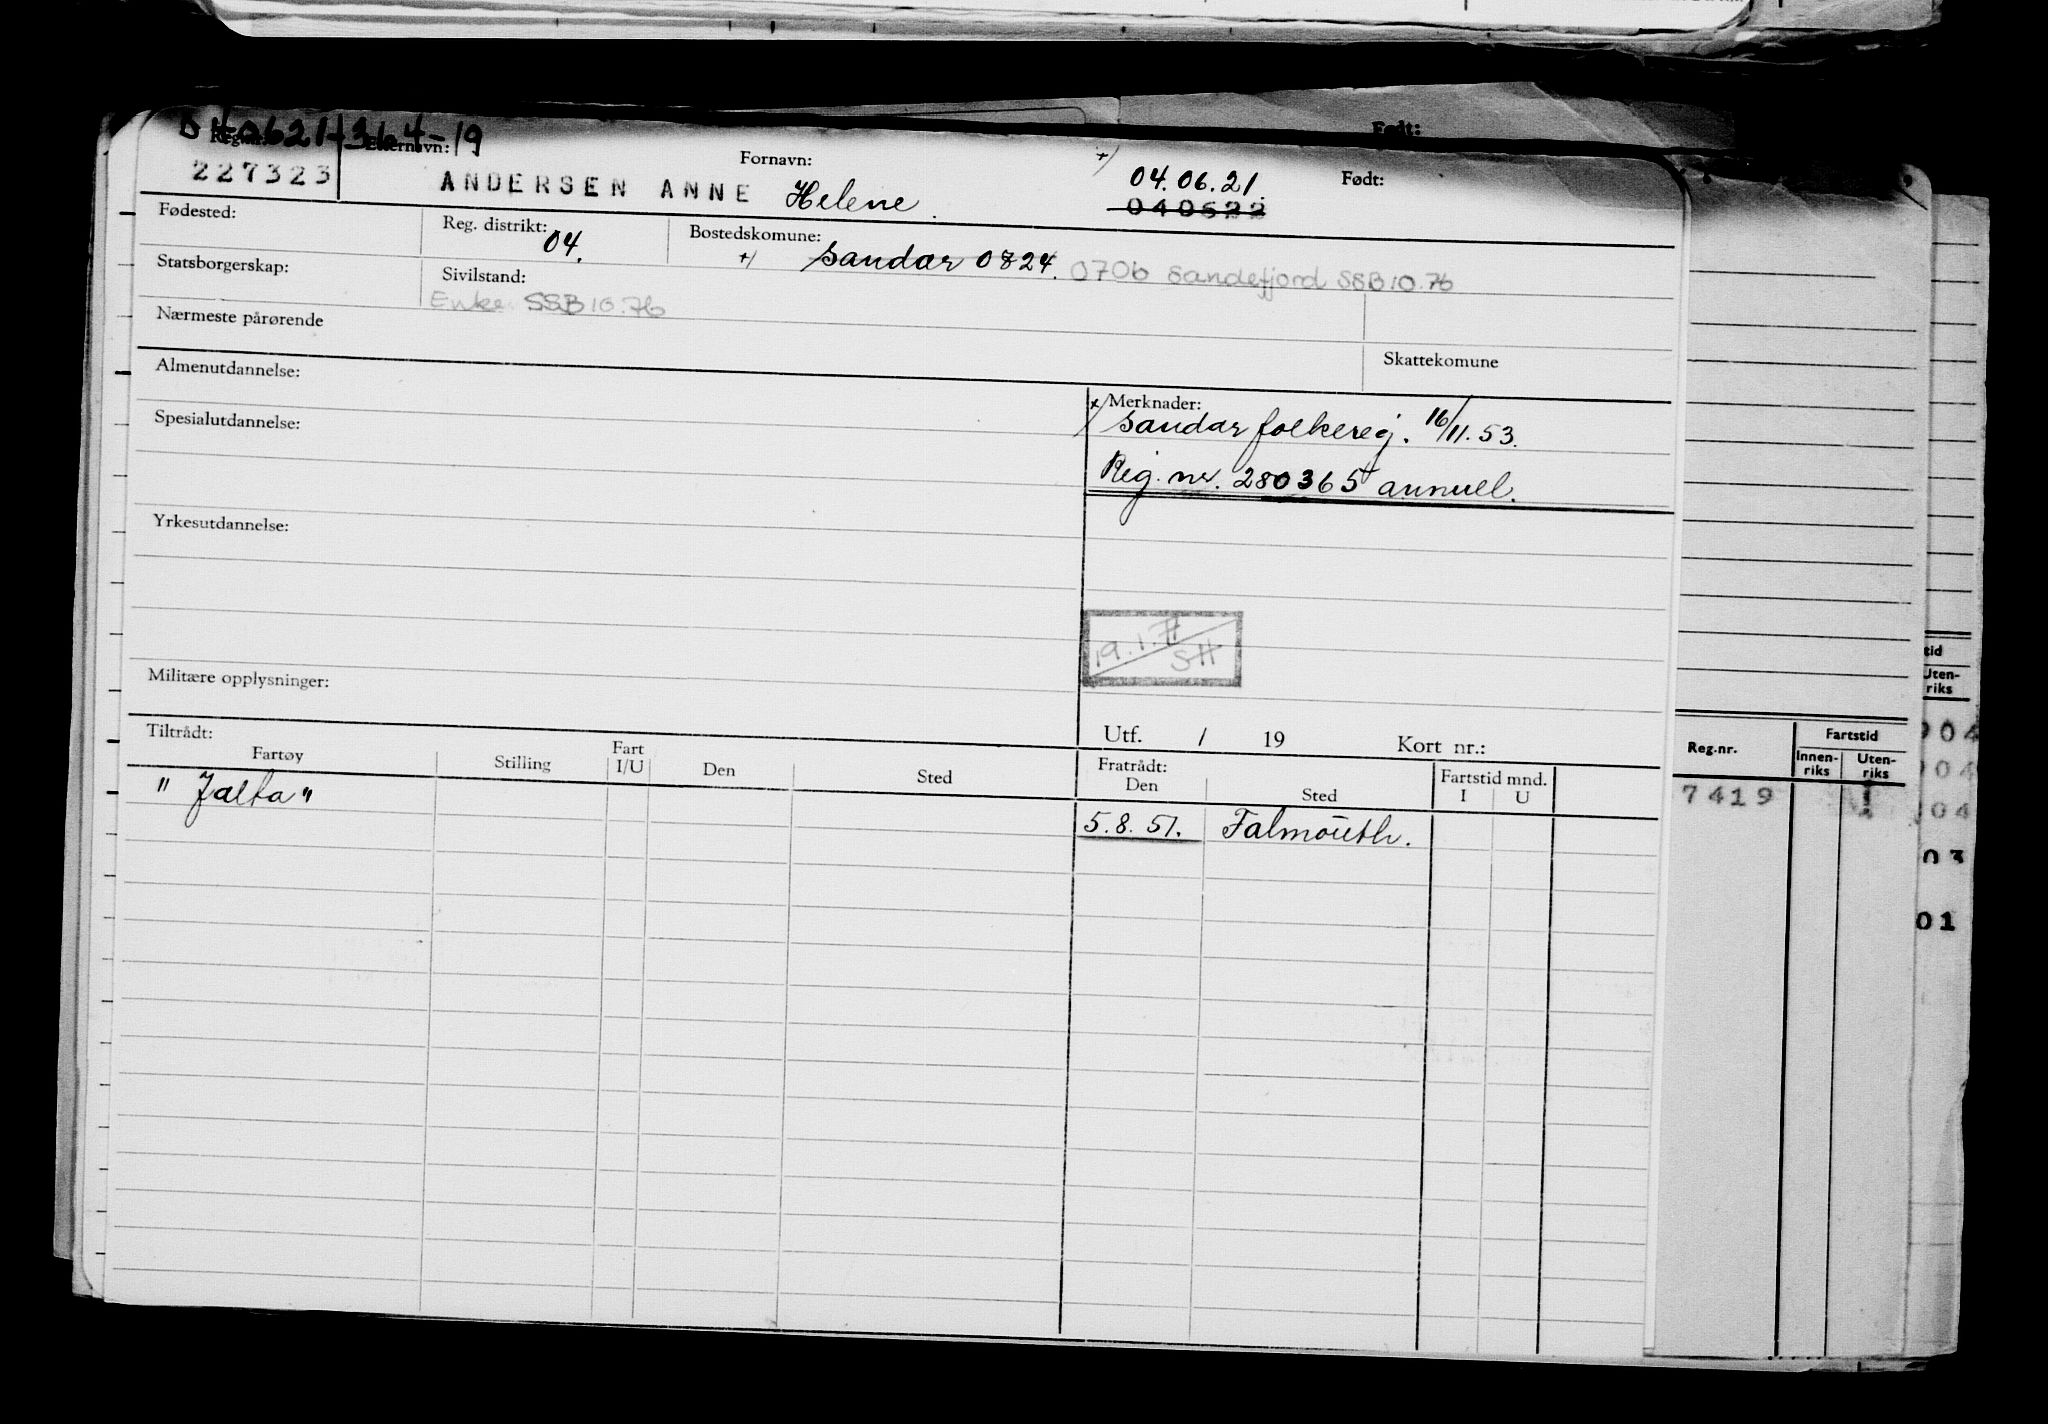 040621 - 19
Reg.nr. Etternavn: Fornavn: Født:
227323 ANDERSEN ANNE Helene. +/ 04.06.21.
040622
Fødested: Reg. distrikt: 04. Bostedskomune: +/ Sandar 0824. 0706 Sandefjord SSB 10.76
Statsborgerskap: Sivilstand: Enke SSB 10.76
Nærmeste pårørende
Skattekomune
Almenutdannelse:
+/ Merknader:
Sandar folkereg. 16/11.53.
Spesialutdannelse:
Reg. nr. 280365 annull.
Yrkesutdannelse:
19.1.77 SH
Militære opplysninger:
Utf. / 19 Kort nr.:
Tiltrådt: Fratrådt:
Fartøy Stilling Fart I/U Den Sted Den Sted Fartstid mnd. I U
" Jalta " 5.8.51. Falmouth.
Født:
Reg.nr. Fartstid
Innen-riks Uten-riks
7419
tid
Uten-
riks
904
904
04
03
01